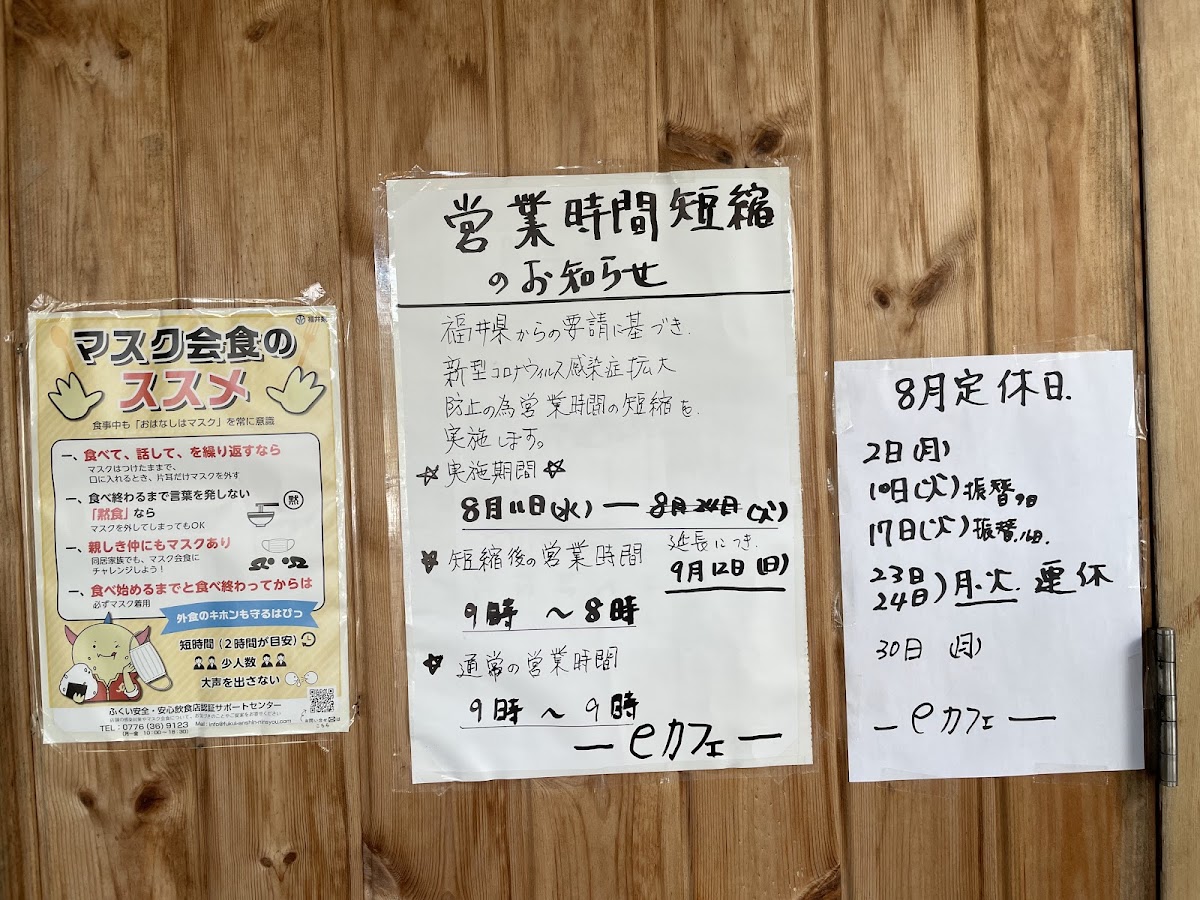 福井県
マスク会食の
ススメ
食事中も「おはなしはマスク」を常に意識
一、食べて、話して、を繰り返すなら
マスクはつけたままで、
口に入れるとき、片耳だけマスクを外す
一、食べ終わるまで言葉を発しない
「黙食」なら
黙
マスクを外してしまってもOK
一、親しき仲にもマスクあり
同居家族でも、マスク会食に
チャレンジしよう!
一、食べ始めるまでと食べ終わってからは
必ずマスク着用
外食のキホンも守るはぴっ
短時間(2時間が目安)
少人数
大声を出さない
ふくい安全・安心飲食店認証サポートセンター
TEL:0776(36)9123
(月~金 10:00~18:30)
お問い合せは
こちら
営業時間短縮
のお知らせ
福井県からの要請に基づき.
新型コロナウィルス感染症拡大
防止の為営業時間の短縮を.
実施します。
☆実施期間☆
8月11日(水)ー8月24日(火)
延長につき.
9月12日(日)
☆短縮後の営業時間
9時~8時
☆通常の営業時間
9時~9時
ーeカフェー
8月定休日.
2日(月)
10日(火)振替9日
17日(火)振替16日.
23日
24日)月・火.連休
30日(月)
ーeカフェー